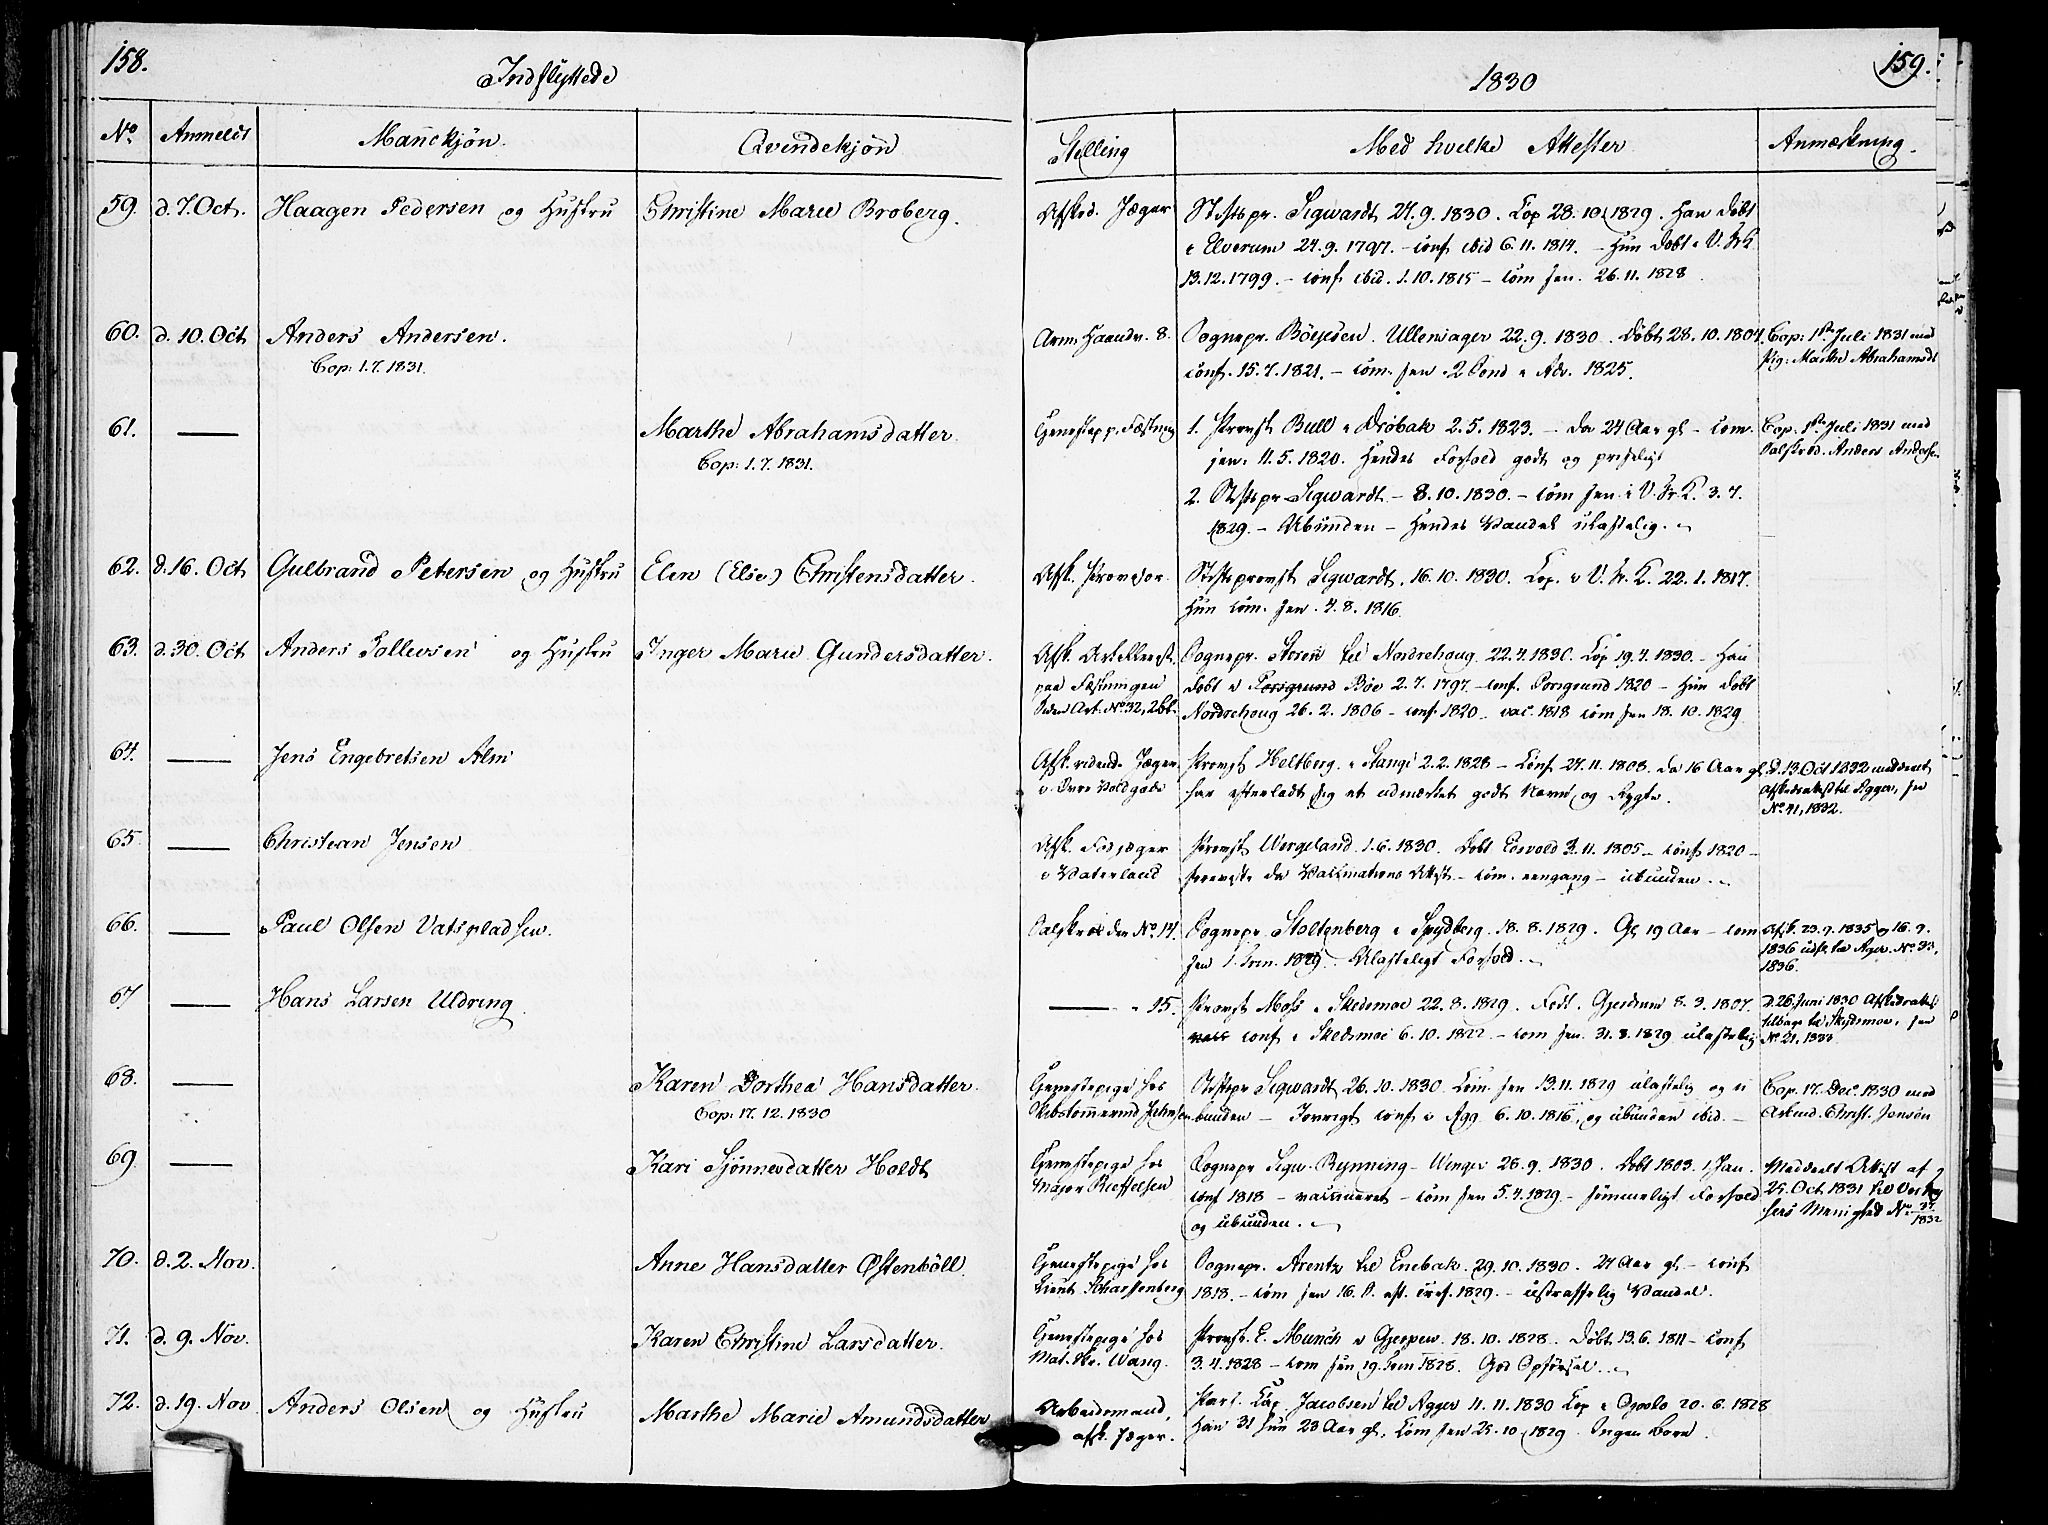 158.
Indflyttede
1830
159.
No. Anmeldt Mandkjøn. Qvindekjøn Stilling Med hvilke Attester Anmærkning.
59. d. 7. Oct. Haagen Pedersen og Hustru Christine Marie Broberg. Afsked. Jæger Stiftspr. Sigwardt 24.9.1830. Cop 28.10.1829. Han døbt
i Elverum 24.9.1797. – conf ibid 6.11.1814. – Hun døbt i V. Fr K
13.12.1799. – conf ibid. 1.10.1815 – com sen. 26.11.1828
60. d. 10. Oct Anders Andersen. Sognepr. Ullensager 22.9.1830. Døbt 28.10.1804. Cop: 1ste Juli 1831 med
Cop: 1.7.1831. conf. 15.7.1821. – com. sen 2 Sønd i Adv. 1825. Pig: Marthe Abrahamsdt
61. — Marthe Abrahamsdatter. Tjenestep. p. Fæstning 1. Provst Bull i Drøbak 2.5.1823. – da 24 Aar gl – com. Cop. 1ste Juli 1831 med
Cop: 1.7.1831. sen. 11.5.1820. Hendes Forhold godt og priseligt Anders Andersen
2. Stiftspr Sigwardt – 8.10.1830. – com sen i V. Fr. K. 3.7.
1829. – Ubunden – Hendes Vandel ulastelig.
62. d. 16. Oct Gulbrand Petersen og Hustru Elen (Else) Christensdatter. Afsk. Stiftsprovst Sigwardt. 16.10.1830. Cop. i V. Fr. K. 22.1.1817.
Hun com. sen. 4.8.1816.
63. d. 30. Oct Anders Tollevsen og Hustru Inger Marie Gundersdatter. Afsk. Artillerist Sognepr. Steen til Nordrehoug 22.4.1830. Cop 19.4.1830. – Han
paa Fæstningen døbt i Porsgrund Böe 2.7.1797 – conf. Porsgrund 1820 – Hun døbt
No. 32, 2 bt. Nordrehoug 26.2.1806 – conf 1820 vac. 1818 com sen 18.10.1829
64. — Jens Engebretsen Alm Afsk. ridende Jæger Provst Heltberg i Stange 2.2.1828 – Conf 27.11.1808. da 16 Aar gl. d. 13 Oct 1832 meddeelt
i Øvre Voldgade har efterladt sig et udmærket godt Navn og Rygte. til Agger, see
No. 41, 1832.
65. — Christian Jensen Afsk. Fodjæger Provst Wergeland. 1.6.1830. Døbt Eidsvold 3.11.1805 – conf 1820 –
i Vaterland foreviste da Vaccinations Attest – com. eengang – ubunden.
66. — Paul Olsen Vatspladsen. No. 14. Sognepr. Stoltenberg i Spydberg. 18.8.1829. Gl 19 Aar – com Afsk. 23.9.1835 og 16.9.
sen 1. Trin. 1829. Ulasteligt Forhold. 1836 udfl. til Ager. No. 33,
1836.
67 — Hans Larsen Uldring — " 15. Provst Moss i Skedsmoe 22.8.1829. Født. Gjerdrum 8.3.1807. D. 26 Juni 1830
conf i Skedsmoe 6.10.1822 – com sen. 31.8.1829 ulastelig tilbage til Skydsmoe, see
No. 21, 1833
68. — Karen Dorthea Hansdatter. Tjenestepige hos Stiftspr Sigwardt 26.10.1830. Com. sen 13.11.1829 ulastelig og u Cop. 17. Dec. 1830 med
Cop: 17.12.1830 bunden – Forevigt conf i Agg 6.10.1816, og ubunden ibid. – Christ. Jensen
69. — Kari Sjønnesdatter Holdt Tjenestepige hos Sognepr Rynning – Winger 28.9.1830. Døbt 1803. 1 Jan. Meddeelt Attest af
Major Rieffelsen conf 1818 – vaccineret – com sen 5.4.1829 – sømmeligt Forhold 25. Oct 1831 til
og ubunden. Menighed No. 37/1832
70. d. 2. Nov. Anne Hansdatter Østenböll. Tjenestepige hos Sognepr. Arentz til Enebak. 29.10.1830. 27 Aar gl. – conf
Lieut Scharffenberg 1818. – com sen 16. S. eft. Tref. 1829. – ustraffelig Vandel.
71. d. 9. Nov. Karen Christine Larsdatter. Tjenestepige hos Provst. E. Munch i Gjerpen. 18.10.1828. Døbt 13.6.1811 – conf
Mat. Skr. Wang. 3.4.1828 – com sen 19. Trin 1828. God Opførsel.
72. d. 19. Nov Anders Olsen og Hustru Marthe Marie Amundsdatter Arbeidsmand, Pers. Cap. Jacobsen til Agger 11.11.1830 Cop i Opslo 20.6.1828
afsk. Jæger. Han 31 hun 23 Aar gl, Com sen 25.10.1829. Ingen Børn.